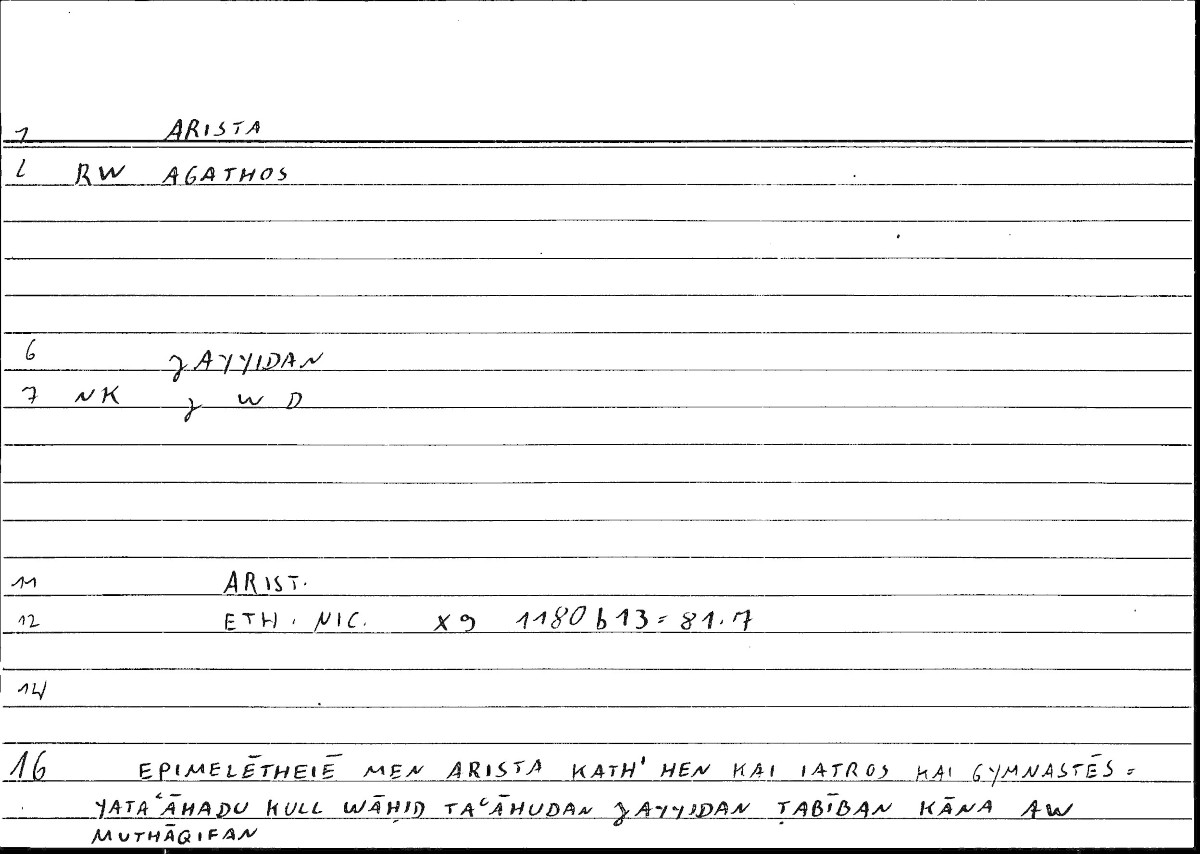 1 ARISTA
2 RW AGATHOS
6 ǧAYYIDAN
7 NK ǧ W D
11 ARIST.
12 ETH. NIC. X9 1180b13 = 81.7
14
16 EPIMELĒTHEIĒ MEN ARISTA KATH' HEN KAI IATROS KAI GYMNASTĒS =
YATAʿĀHADU KULL WĀḤID TAʿĀHUDAN ǧAYYIDAN ṬABĪBAN KĀNA AW
MUTHĀQIFAN